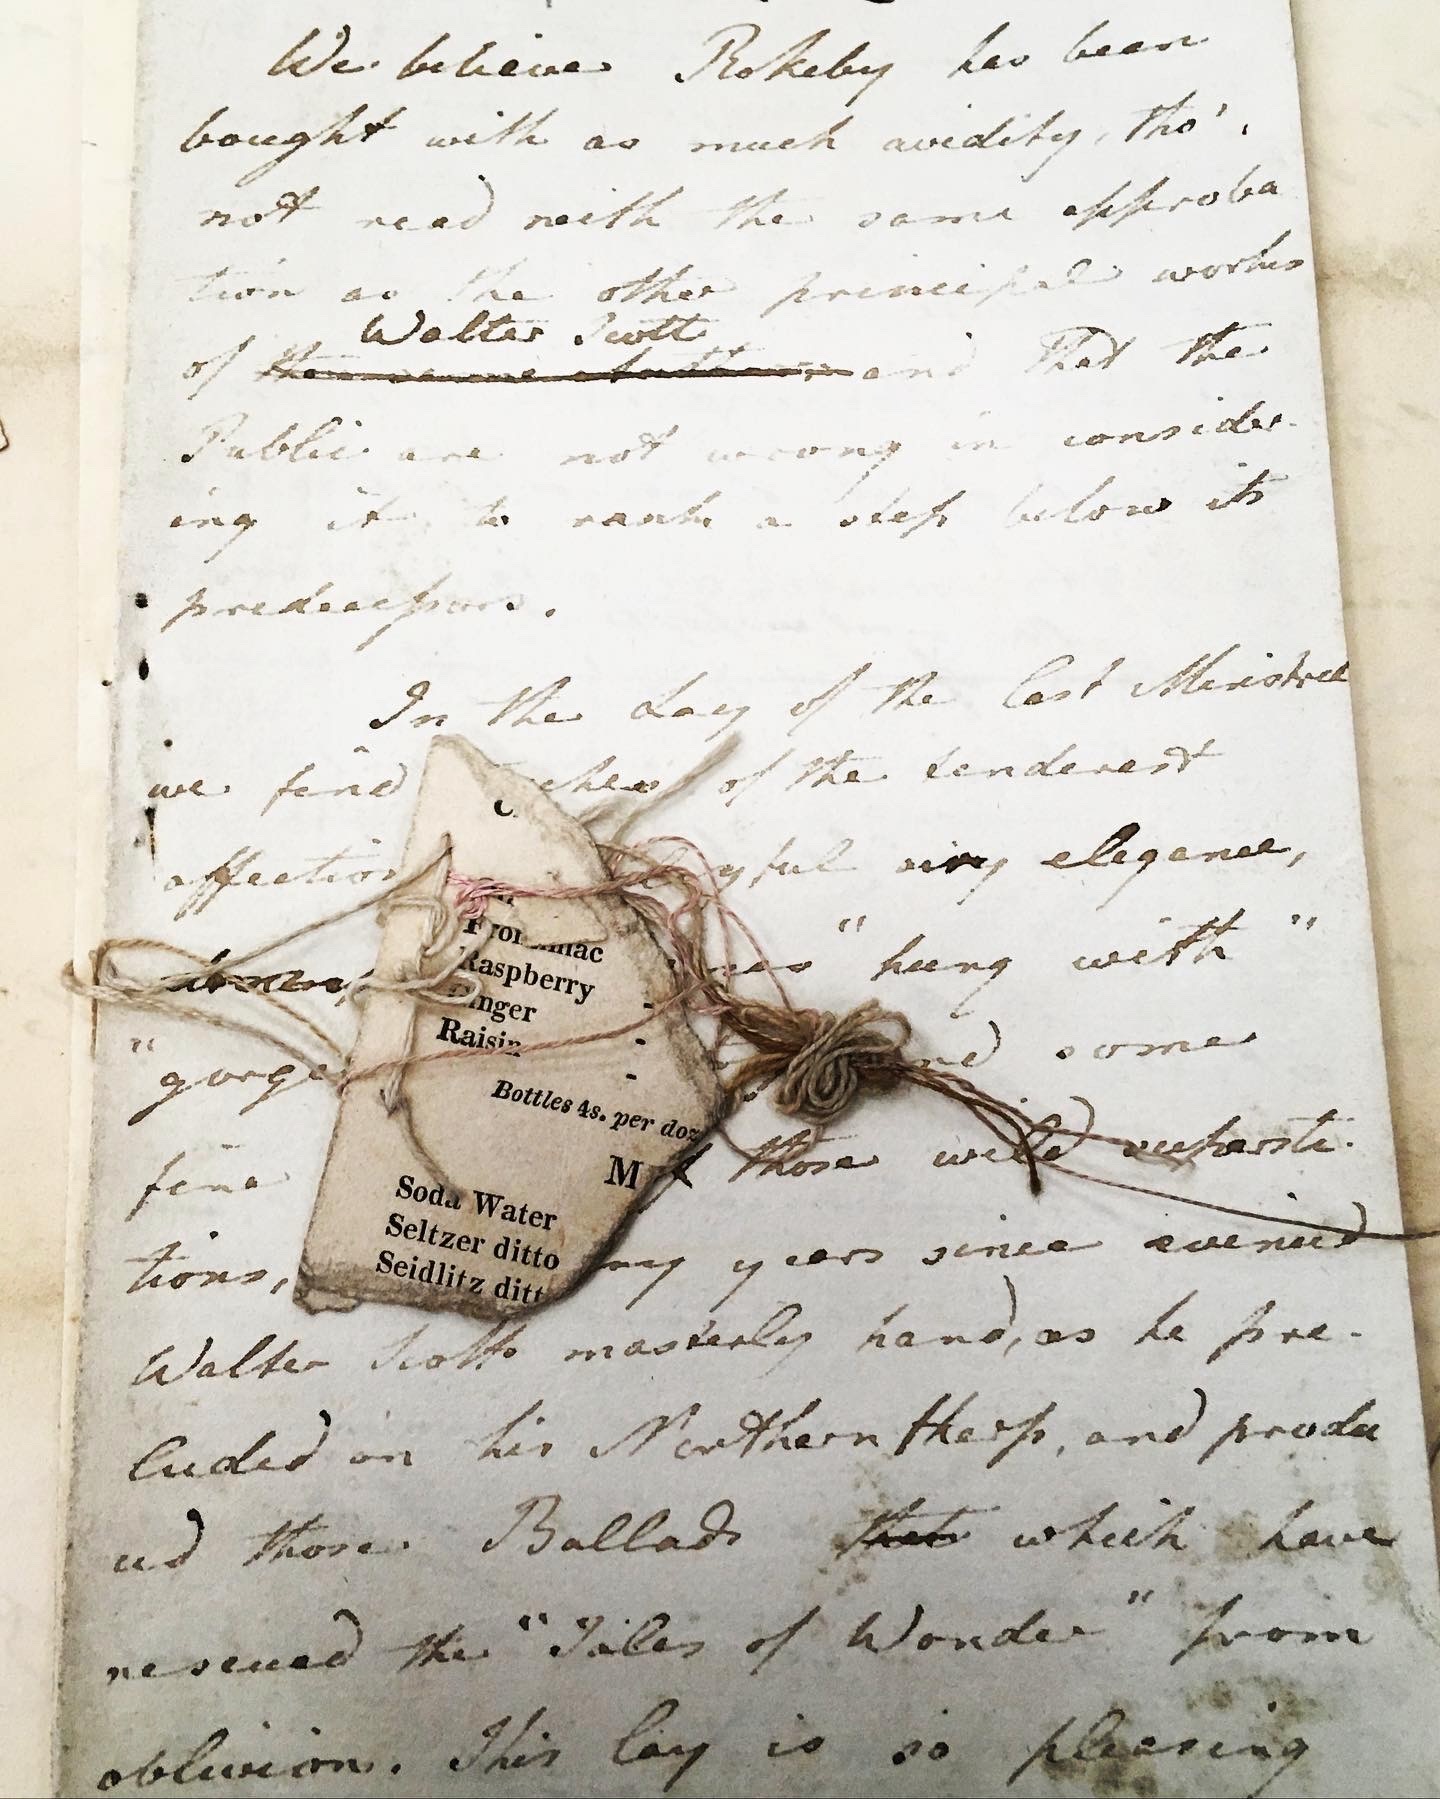 We believe Rokeby has been
bought with as much avidity, tho'
not read with the same approba
tion as the other principal works
Walter Scott
of the same author and that the
Public are not wrong in consider-
ing it to rank a step below its
predecessors.
In the Lay of the last Minstrel
we find ches of the tenderest
affection yful airy elegance,
"hung with"
"gorge nd some
fine those wild supersti-
tions, ny years since evinced
Walter Scotts masterly hand, as he pre-
luded on his Northern Harp, and produ
ced those Ballads that which have
rescued the "Tales of Wonder" from
oblivion. This lay is so pleasing
Fron iniac
Raspberry
inger
Raisin
Bottles 4s. per doz
M
Soda Water
Seltzer ditto
Seidlitz ditt